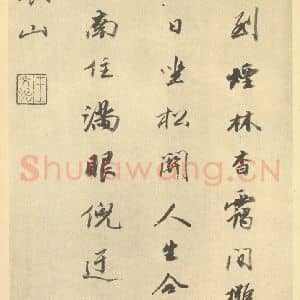 煙林杳靄間
日坐松關人生合
南住滿眼倪迂
山
Shufawang.CN